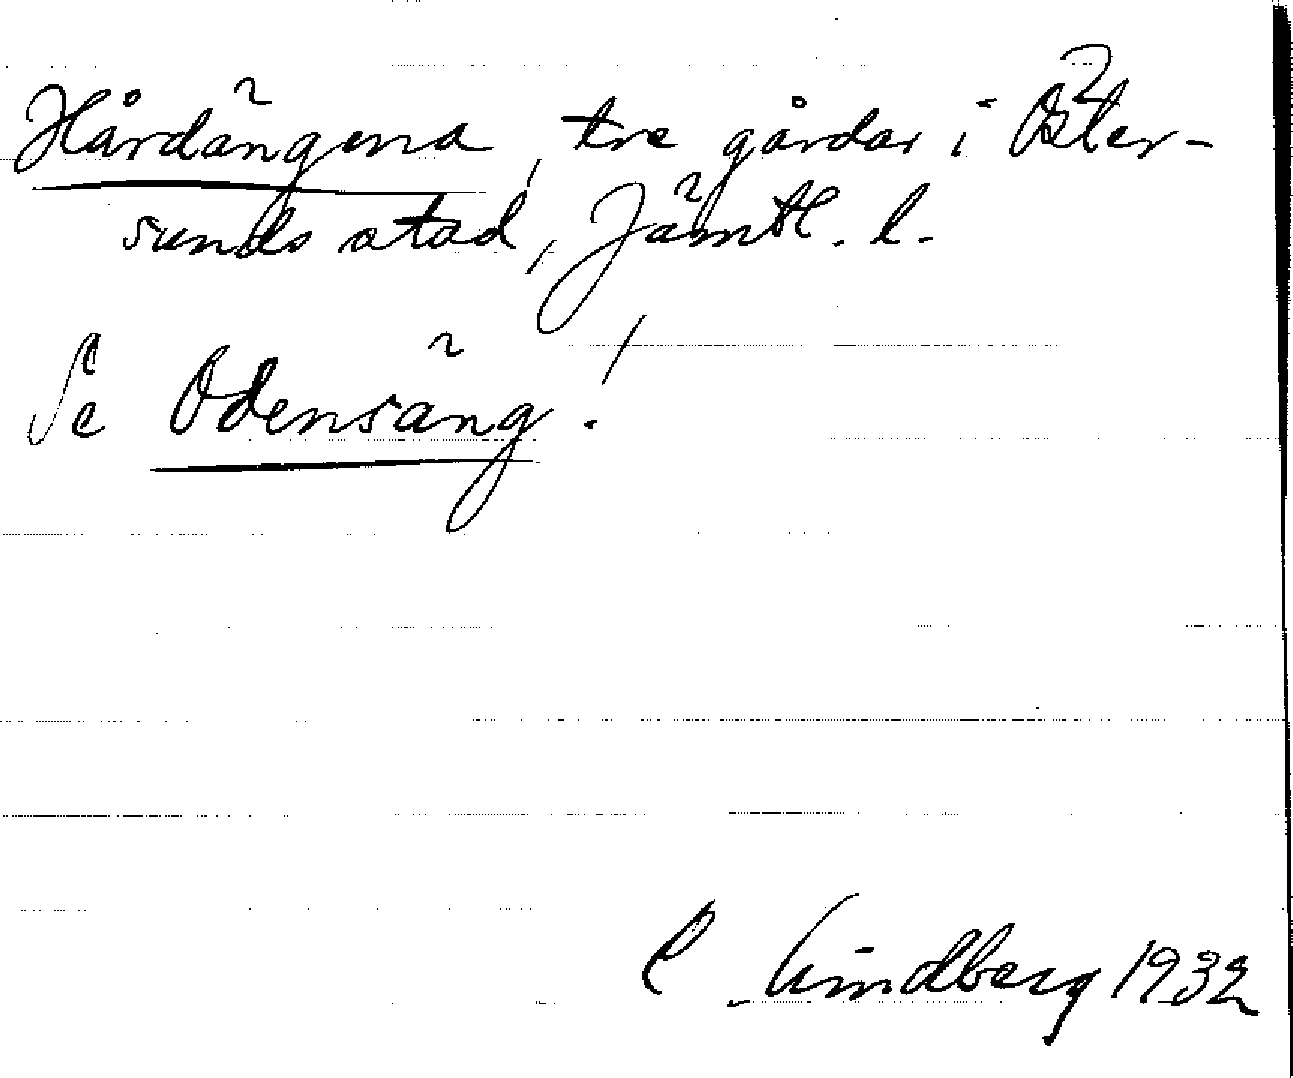 Hårdängena, tre gårdar i Öster-
sunds stad, Jämtl. l.
Se Odensäng!
C Lindberg 1932